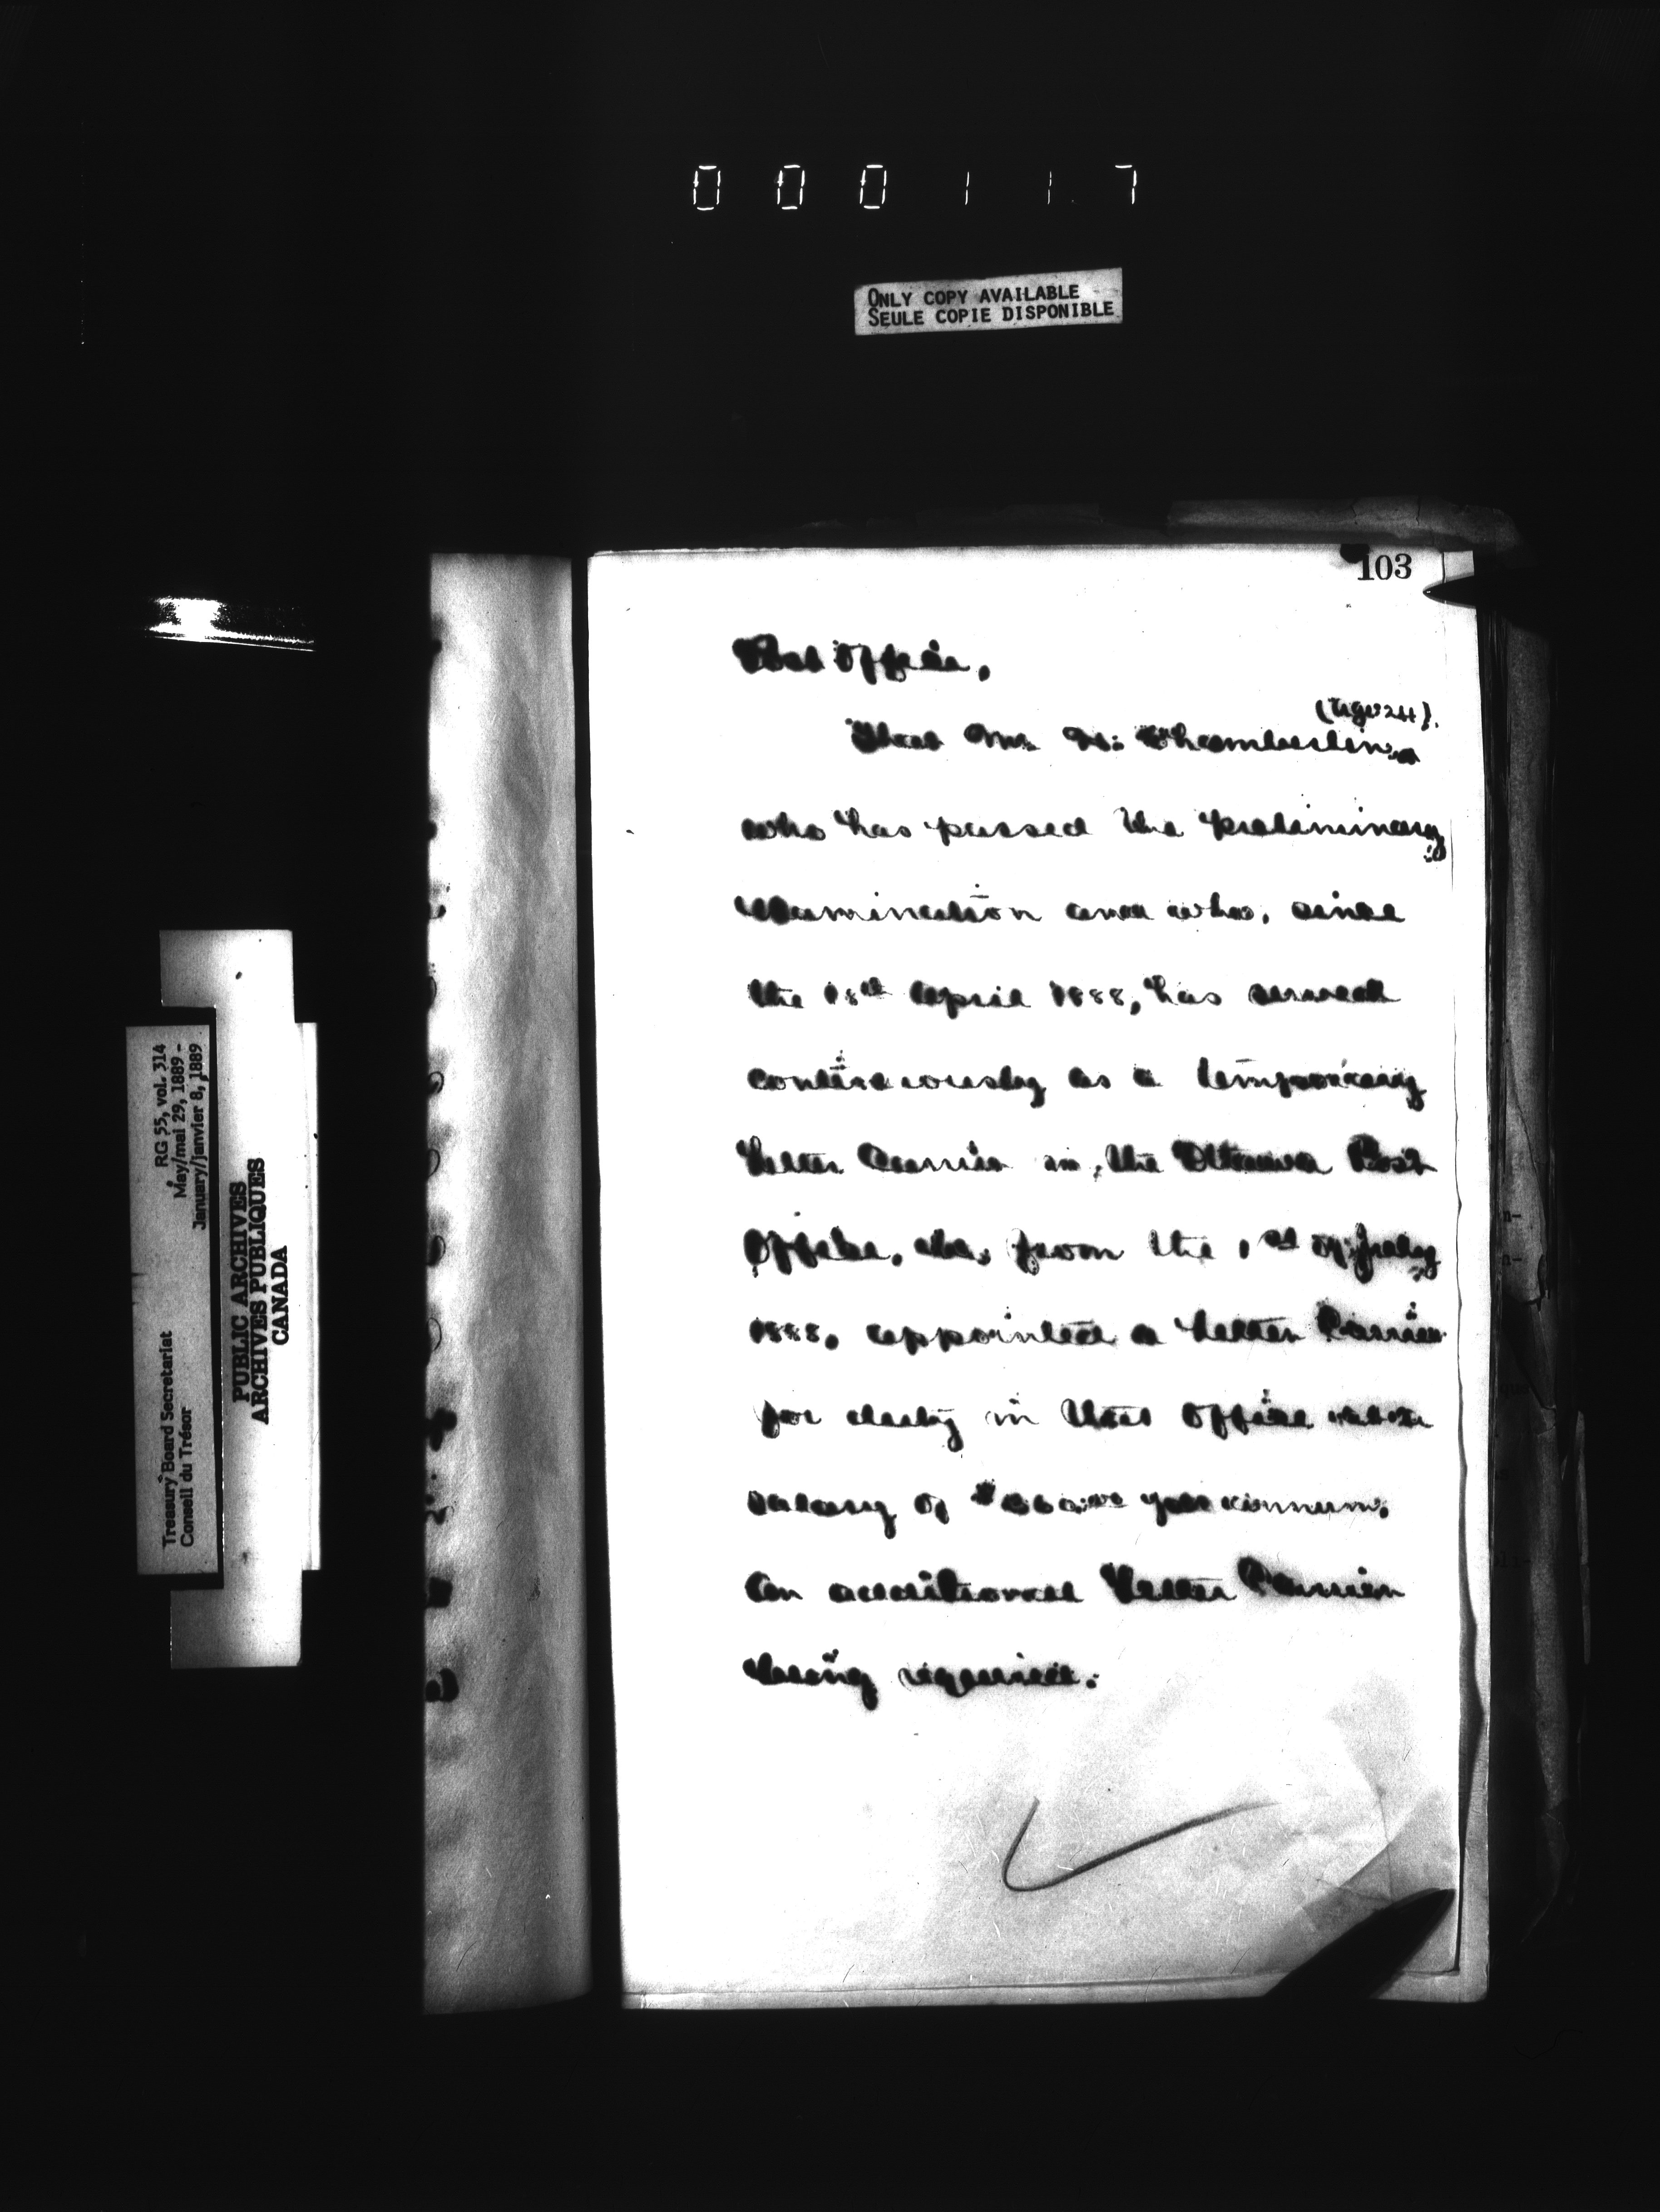 000117
ONLY COPY AVAILABLE
SEULE COPIE DISPONIBLE
RG 55, vol. 314
May/mai 29, 1889 -
January/janvier 8, 1889
Treasury Board Secretariat
Conseil du Trésor
PUBLIC ARCHIVES
ARCHIVES PUBLIQUES
CANADA
103
Post Office,
(Age 24).
That Mr. Chamberlin,
who has passed the preliminary
examination and who, since
the 18th April 1888, has served
continuously as a temporary
Letter Carrier in the Ottawa Post
Office, be, from the 1st of July
1888, appointed a Letter Carrier
for duty in that Office
salary of per annum,
an additional Letter Carrier
being required.